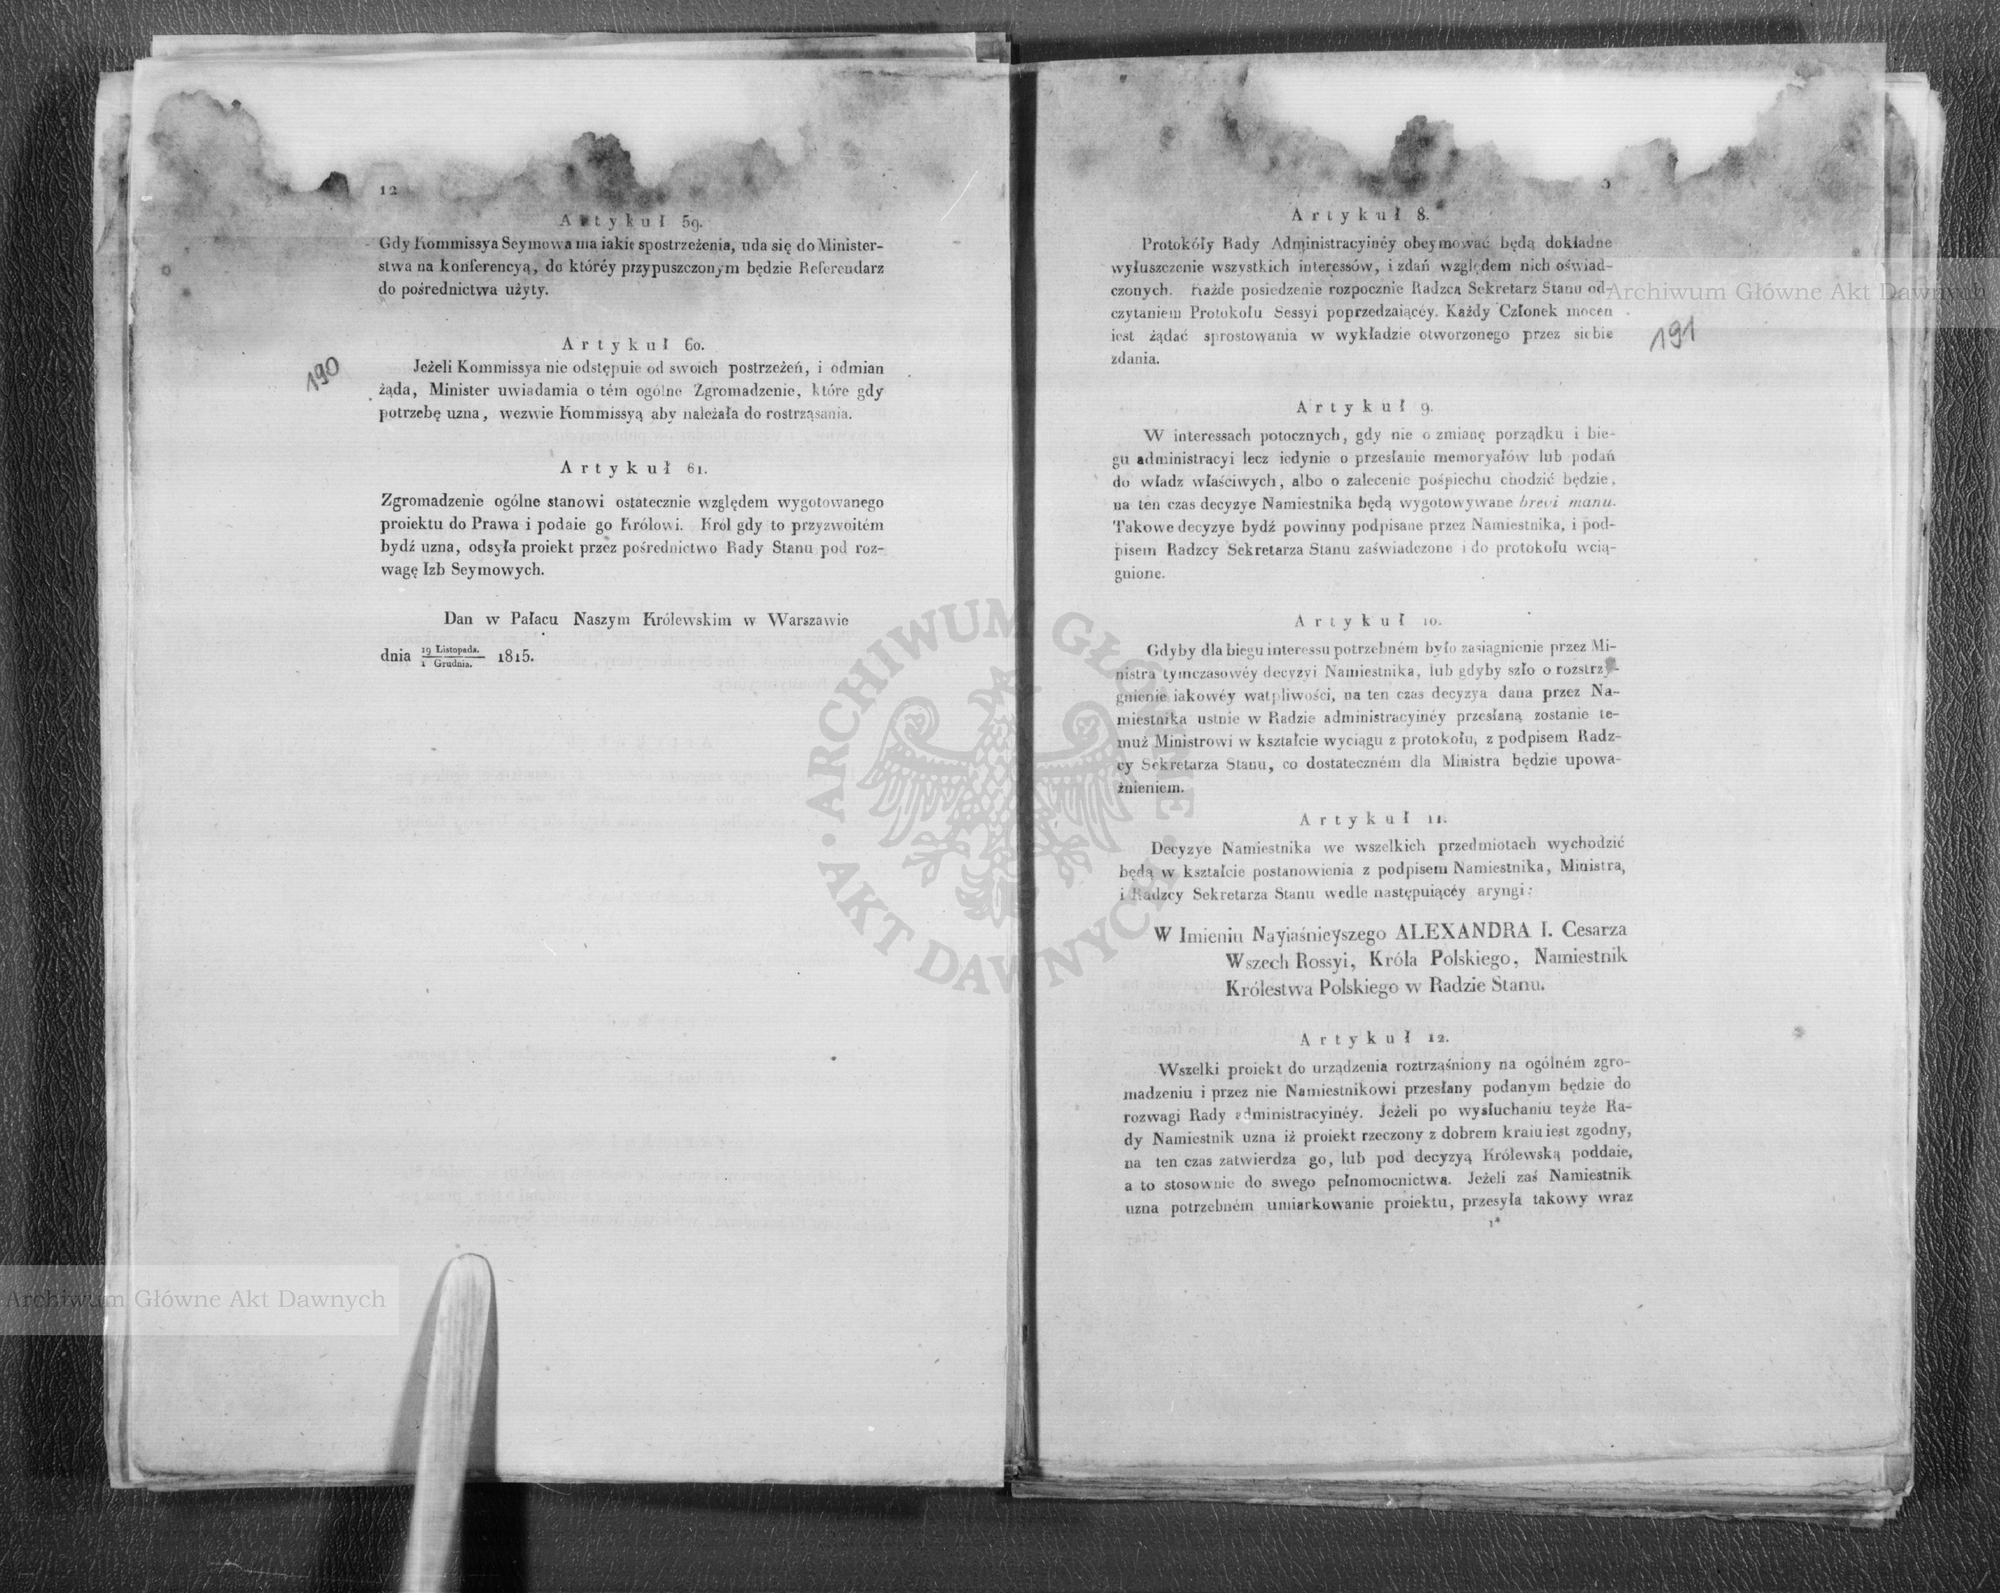 12
Artykuł 59.
Gdy Kommissya Seymowa ma iakie spostrzeżenia, uda się do Minister-
stwa na konferencyą, do któréy przypuszczonym będzie Referendarz
do pośrednictwa użyty.
190
Artykuł 60.
Jeżeli Kommissya nie odstępuie od swoich postrzeżeń, i odmian
żąda, Minister uwiadamia o tém ogólne Zgromadzenie, które gdy
potrzebę uzna, wezwie Kommissyą aby należała do rostrząsania.
Artykuł 61.
Zgromadzenie ogólne stanowi ostatecznie względem wygotowanego
proiektu do Prawa i podaie go Królowi. Król gdy to przyzwoitém
bydź uzna, odsyła proiekt przez pośrednictwo Rady Stanu pod roz-
wagę Izb Seymowych.
Dan w Pałacu Naszym Królewskim w Warszawie
dnia 19 Listopada. / 1 Grudnia. 1815.
Archiwum Główne Akt Dawnych
Artykuł 8.
Protokóły Rady Administracyinéy obeymować będą dokładne
wyłuszczenie wszystkich interessów, i zdań względem nich oświad-
czonych. Każde posiedzenie rozpocznie Radzca Sekretarz Stanu od-
czytaniem Protokołu Sessyi poprzedzaiącéy. Każdy Członek mocen
iest żądać sprostowania w wykładzie otworzonego przez siebie
zdania.
Archiwum Główne Akt Dawnych
191
Artykuł 9.
W interessach potocznych, gdy nie o zmianę porządku i bie-
gu administracyi lecz iedynie o przesłanie memoryałów lub podań
do władz właściwych, albo o zalecenie pośpiechu chodzić będzie,
na ten czas decyzye Namiestnika będą wygotowywane brevi manu.
Takowe decyzye bydź powinny podpisane przez Namiestnika, i pod-
pisem Radzcy Sekretarza Stanu zaświadczone i do protokołu wcią-
gnione.
Artykuł 10.
Gdyby dla biegu interessu potrzebném było zasiągnienie przez Mi-
nistra tymczasowéy decyzyi Namiestnika, lub gdyby szło o rozstrzy-
gnienie iakowéy wątpliwości, na ten czas decyzya dana przez Na-
miestnika ustnie w Radzie administracyinéy przesłaną zostanie te-
muż Ministrowi w kształcie wyciągu z protokołu, z podpisem Radz-
cy Sekretarza Stanu, co dostateczném dla Ministra będzie upowa-
żnieniem.
Artykuł 11.
Decyzye Namiestnika we wszelkich przedmiotach wychodzić
będą w kształcie postanowienia z podpisem Namiestnika, Ministra,
i Radzcy Sekretarza Stanu wedle następuiącéy aryngi:
W Imieniu Nayiaśnieyszego ALEXANDRA I. Cesarza
Wszech Rossyi, Króla Polskiego, Namiestnik
Królestwa Polskiego w Radzie Stanu.
Artykuł 12.
Wszelki proiekt do urządzenia roztrząśniony na ogólném zgro-
madzeniu i przez nie Namiestnikowi przesłany podanym będzie do
rozwagi Rady administracyinéy. Jeżeli po wysłuchaniu teyże Ra-
dy Namiestnik uzna iż proiekt rzeczony z dobrem kraiu iest zgodny,
na ten czas zatwierdza go, lub pod decyzyą Królewską poddaie,
a to stosownie do swego pełnomocnictwa. Jeżeli zaś Namiestnik
uzna potrzebném umiarkowanie proiektu, przesyła takowy wraz
1*
ARCHIWUM GŁÓWNE
AKT DAWNYCH